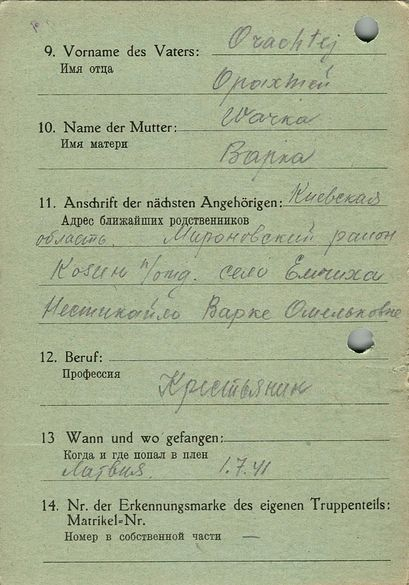 9. Vorname des Vaters: Orachtej
Имя отца
Орыхтей
10. Name der Mutter:
Имя матери
Варка
11. Anschrift der nächsten Angehörigen: Киевская
Адрес ближайших родственников
область. Мироновский район
п/отд. село Емчиха
Варке Омельковне
12. Beruf:
Профессия
Крестьянин
13 Wann und wo gefangen:
Когда и где попал в плен
Латвия. 1.7.41
14. Nr. der Erkennungsmarke des eigenen Truppenteils:
Matrikel-Nr.
Номер в собственной части —